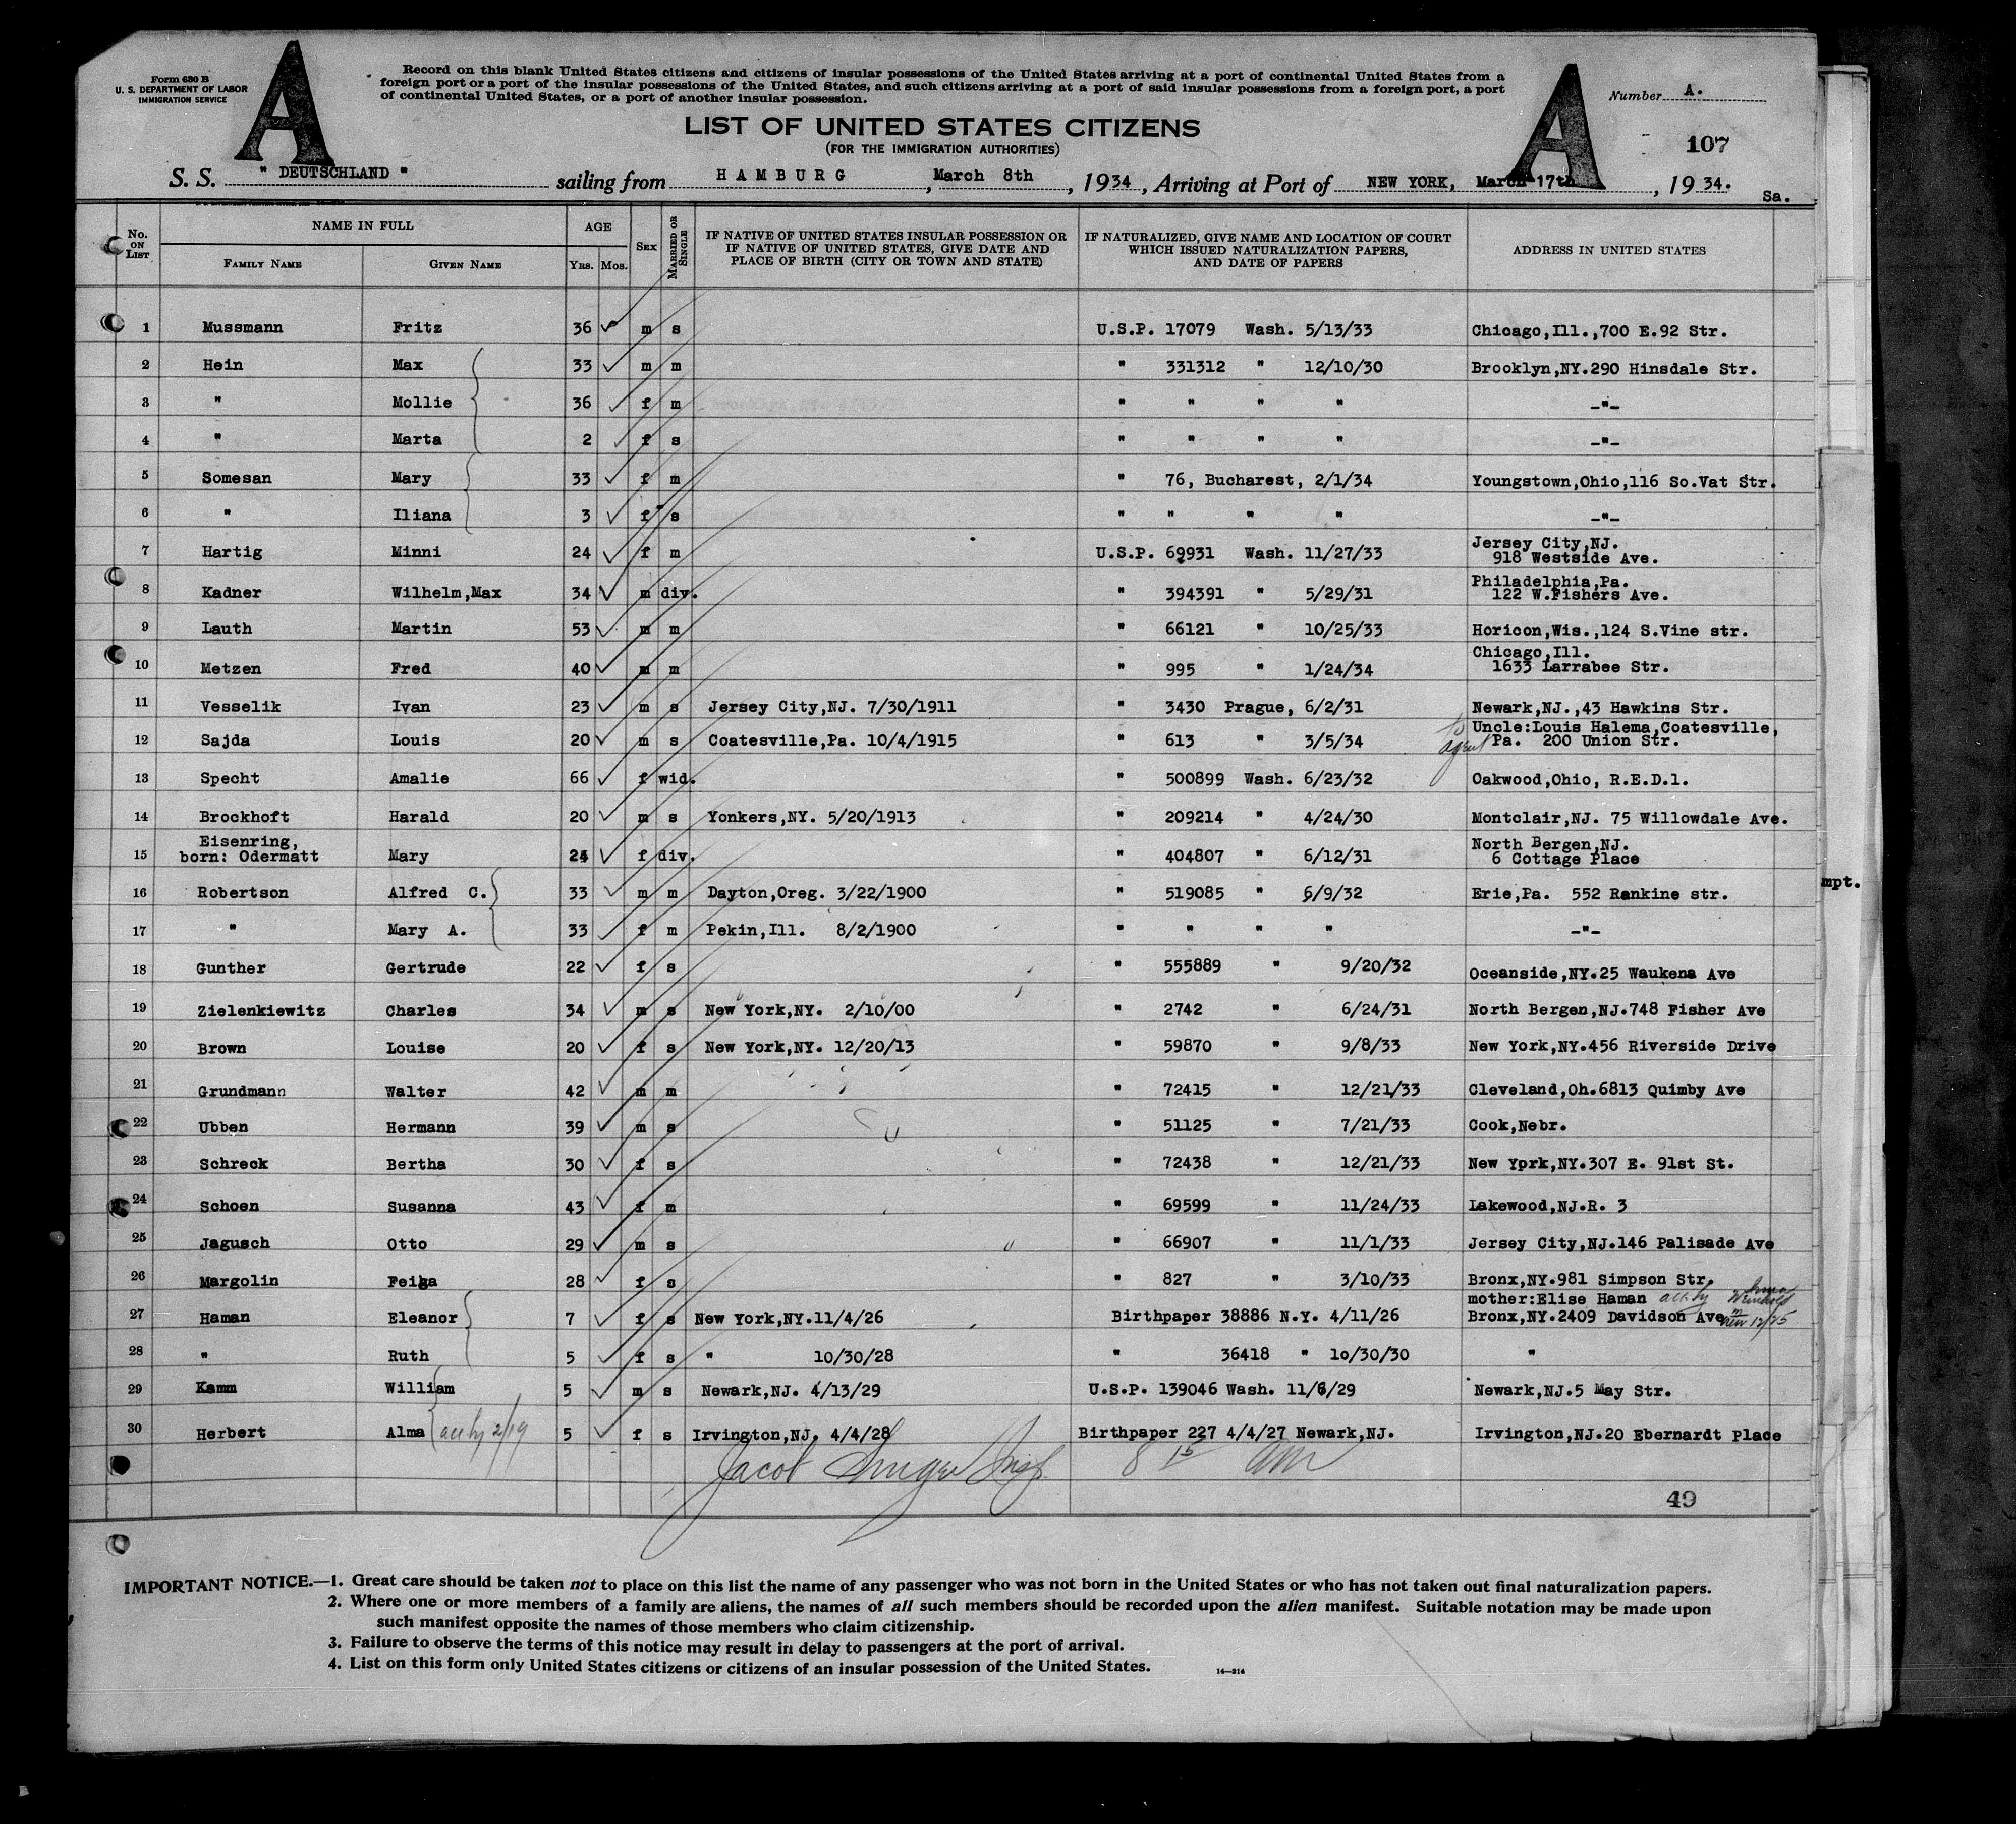 Form 630 B
U. S. DEPARTMENT OF LABOR
IMMIGRATION SERVICE
A
Record on this blank United States citizens and citizens of insular possessions of the United States arriving at a port of continental United States from a
foreign port or a port of the insular possessions of the United States, and such citizens arriving at a port of said insular possessions from a foreign port, a port
of continental United States, or a port of another insular possession.
A
Number A.
LIST OF UNITED STATES CITIZENS
(FOR THE IMMIGRATION AUTHORITIES)
107
S. S. " DEUTSCHLAND " sailing from HAMBURG, March 8th, 1934, Arriving at Port of NEW YORK, March 17th, 1934.
Sa.
No. ON LIST
NAME IN FULL
FAMILY NAME GIVEN NAME
AGE
YRS. MOS.
SEX
MARRIED OR SINGLE
IF NATIVE OF UNITED STATES INSULAR POSSESSION OR
IF NATIVE OF UNITED STATES, GIVE DATE AND
PLACE OF BIRTH (CITY OR TOWN AND STATE)
IF NATURALIZED, GIVE NAME AND LOCATION OF COURT
WHICH ISSUED NATURALIZATION PAPERS,
AND DATE OF PAPERS
ADDRESS IN UNITED STATES
1 Mussmann Fritz 36 m s U.S.P. 17079 Wash. 5/13/33 Chicago,Ill.,700 E.92 Str.
2 Hein Max 33 m m " 331312 " 12/10/30 Brooklyn,NY.290 Hinsdale Str.
3 " Mollie 36 f m " " " " -"-
4 " Marta 2 f s " " " " -"-
5 Somesan Mary 33 f m " 76, Bucharest, 2/1/34 Youngstown,Ohio,116 So.Vat Str.
6 " Iliana 3 f s " " " " -"-
7 Hartig Minni 24 f m U.S.P. 69931 Wash. 11/27/33 Jersey City,NJ.
918 Westside Ave.
8 Kadner Wilhelm,Max 34 m div. " 394391 " 5/29/31 Philadelphia,Pa.
122 W.Fishers Ave.
9 Lauth Martin 53 m m " 66121 " 10/25/33 Horicon,Wis.,124 S.Vine str.
10 Metzen Fred 40 m m " 995 " 1/24/34 Chicago,Ill.
1633 Larrabee Str.
11 Vesselik Ivan 23 m s Jersey City,NJ. 7/30/1911 " 3430 Prague, 6/2/31 Newark,NJ.,43 Hawkins Str.
12 Sajda Louis 20 m s Coatesville,Pa. 10/4/1915 " 613 " 3/5/34 to agent Uncle:Louis Halema,Coatesville,
Pa. 200 Union Str.
13 Specht Amalie 66 f wid. " 500899 Wash. 6/23/32 Oakwood,Ohio, R.E.D.1.
14 Brockhoft Harald 20 m s Yonkers,NY. 5/20/1913 " 209214 " 4/24/30 Montclair,NJ. 75 Willowdale Ave.
Eisenring,
15 born: Odermatt Mary 24 f div. " 404807 " 6/12/31 North Bergen,NJ.
6 Cottage Place
16 Robertson Alfred C. 33 m m Dayton,Oreg. 3/22/1900 " 519085 " 6/9/32 Erie,Pa. 552 Rankine str.
17 " Mary A. 33 f m Pekin,Ill. 8/2/1900 " " " " -"-
18 Gunther Gertrude 22 f s " 555889 " 9/20/32 Oceanside,NY.25 Waukena Ave
19 Zielenkiewitz Charles 34 m s New York,NY. 2/10/00 " 2742 " 6/24/31 North Bergen,NJ.748 Fisher Ave
20 Brown Louise 20 f s New York,NY. 12/20/13 " 59870 " 9/8/33 New York,NY.456 Riverside Drive
21 Grundmann Walter 42 m m " 72415 " 12/21/33 Cleveland,Oh.6813 Quimby Ave
22 Ubben Hermann 39 m s " 51125 " 7/21/33 Cook,Nebr.
23 Schreck Bertha 30 f s " 72438 " 12/21/33 New York,NY.307 E. 91st St.
24 Schoen Susanna 43 f m " 69599 " 11/24/33 Lakewood,NJ.R. 3
25 Jagusch Otto 29 m s " 66907 " 11/1/33 Jersey City,NJ.146 Palisade Ave
26 Margolin Feiga 28 f s " 827 " 3/10/33 Bronx,NY.981 Simpson Str.
mother:Elise Haman
27 Haman Eleanor 7 f s New York,NY.11/4/26 Birthpaper 38886 N.Y. 4/11/26 Bronx,NY.2409 Davidson Ave
28 " Ruth 5 f s " 10/30/28 " 36418 " 10/30/30 "
29 Kamm William 5 m s Newark,NJ. 4/13/29 U.S.P. 139046 Wash. 11/6/29 Newark,NJ.5 May Str.
30 Herbert Alma 5 f s Irvington,NJ. 4/4/28 Birthpaper 227 4/4/27 Newark,NJ. Irvington,NJ.20 Ebernardt Place
Jacob 8 15 am
49
mpt.
IMPORTANT NOTICE.—1. Great care should be taken not to place on this list the name of any passenger who was not born in the United States or who has not taken out final naturalization papers.
2. Where one or more members of a family are aliens, the names of all such members should be recorded upon the alien manifest. Suitable notation may be made upon
such manifest opposite the names of those members who claim citizenship.
3. Failure to observe the terms of this notice may result in delay to passengers at the port of arrival.
4. List on this form only United States citizens or citizens of an insular possession of the United States.
14—214